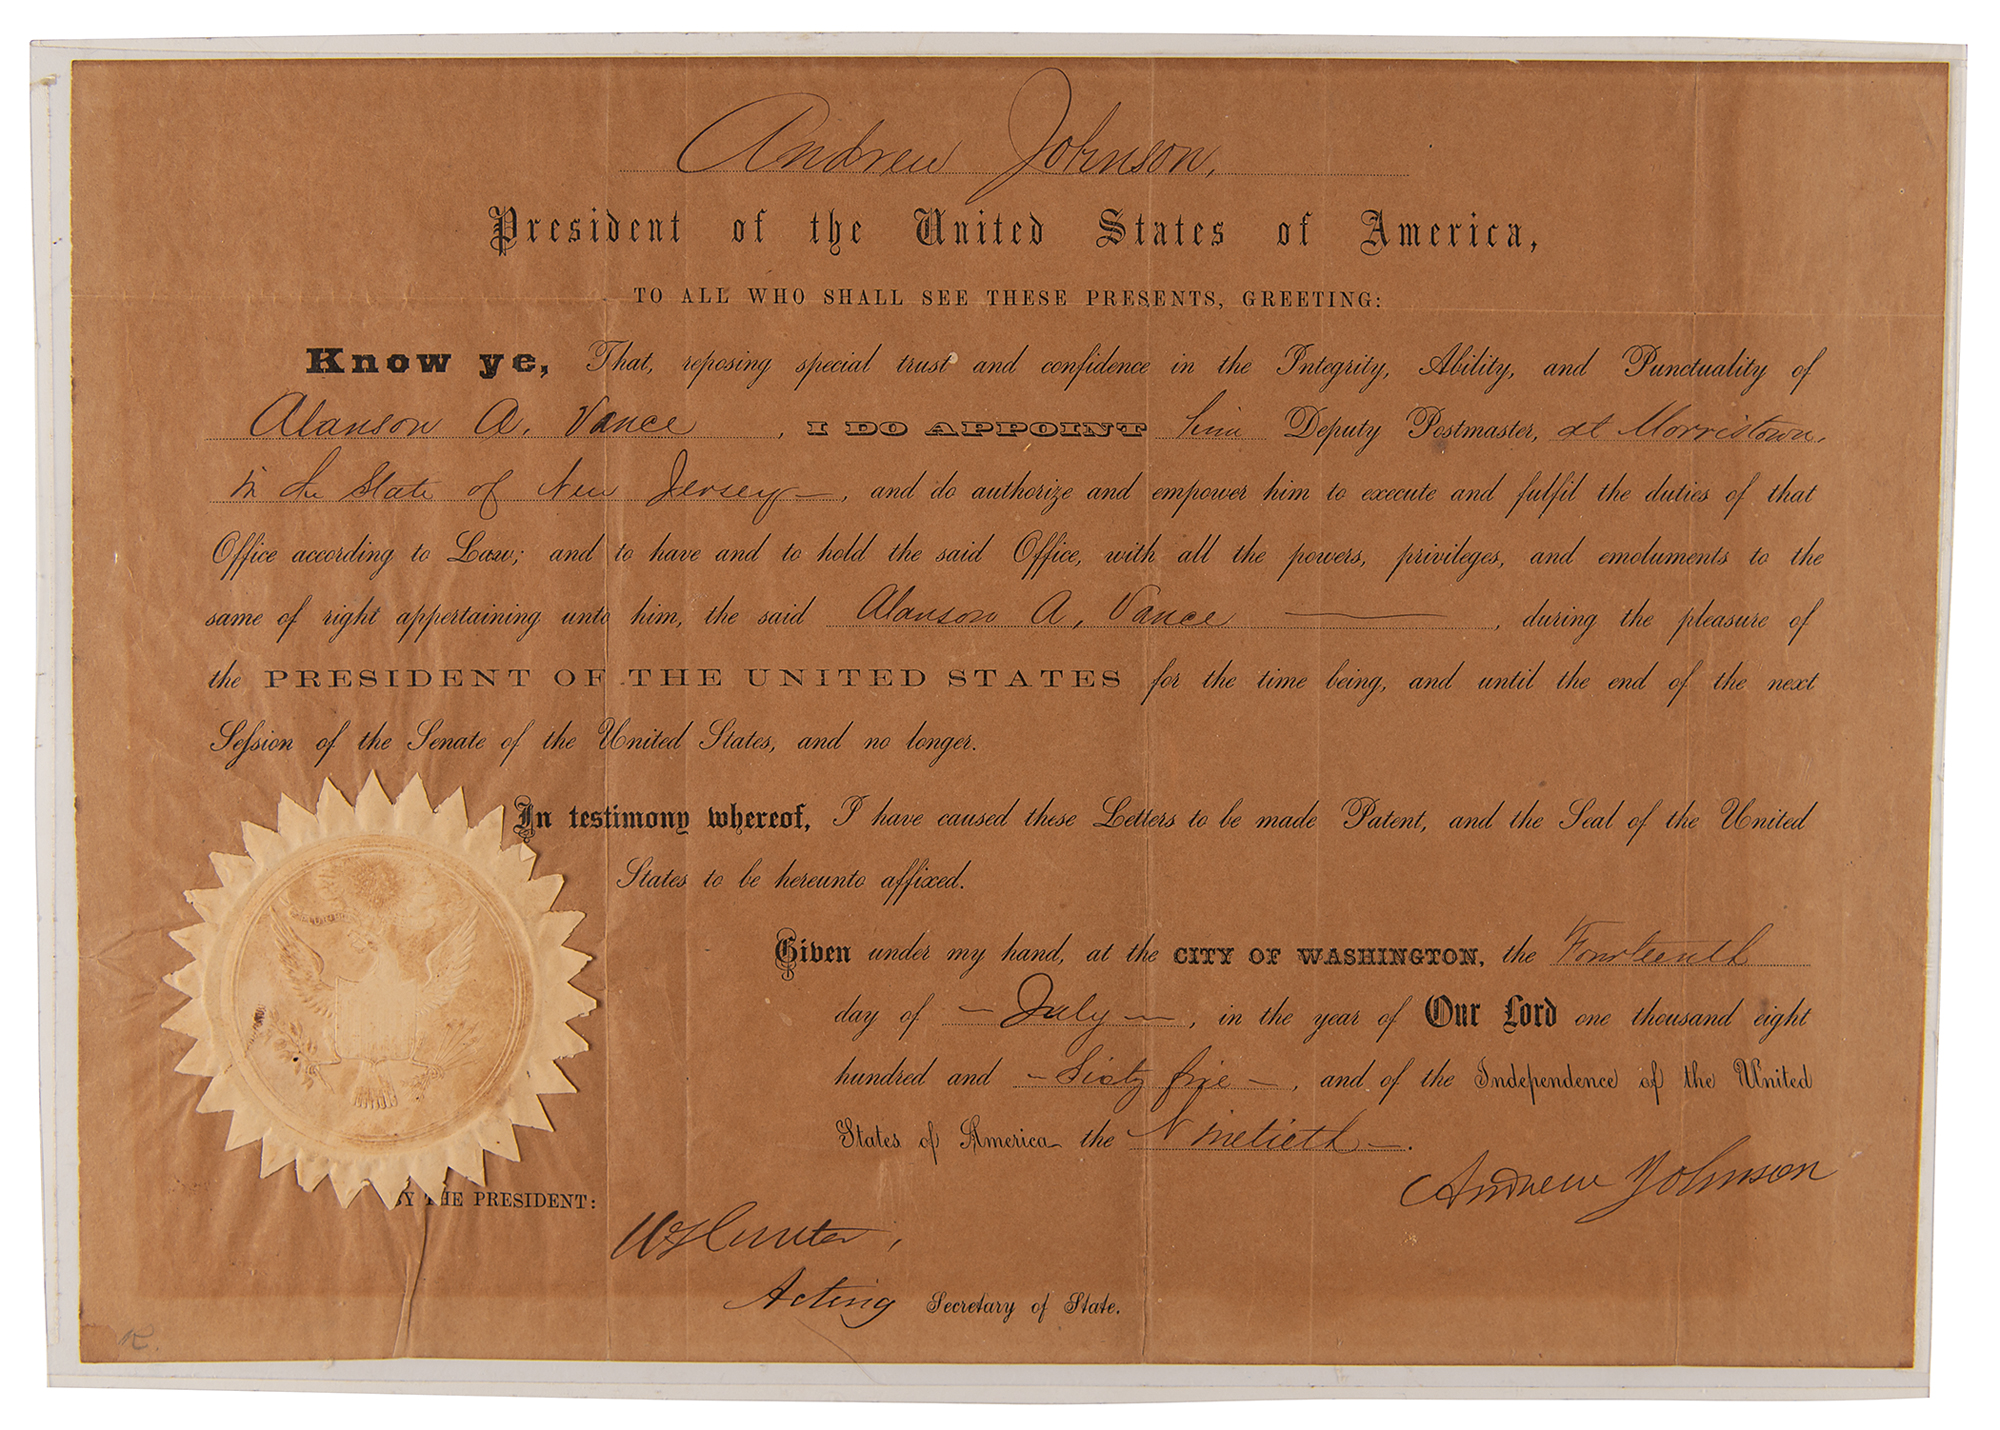 Andrew Johnson,
President of the United States of America,
TO ALL WHO SHALL SEE THESE PRESENTS, GREETING:
Know ye, That, reposing special trust and confidence in the Integrity, Ability, and Punctuality of
Alanson A. Vance, I DO APPOINT him Deputy Postmaster, at Morristown,
in the State of New Jersey—, and do authorize and empower him to execute and fulfil the duties of that
Office according to Law; and to have and to hold the said Office, with all the powers, privileges, and emoluments to the
same of right appertaining unto him, the said Alanson A. Vance —, during the pleasure of
the PRESIDENT OF THE UNITED STATES for the time being, and until the end of the next
Seſsion of the Senate of the United States, and no longer.
In testimony whereof, I have caused these Letters to be made Patent, and the Seal of the United
States to be hereunto affixed.
Given under my hand, at the CITY OF WASHINGTON, the Fourteenth
day of – July –, in the year of Our Lord one thousand eight
hundred and – Sixty five –, and of the Independence of the United
States of America the Ninetieth –.
Andrew Johnson
BY THE PRESIDENT:
W Hunter,
Acting Secretary of State.
K.